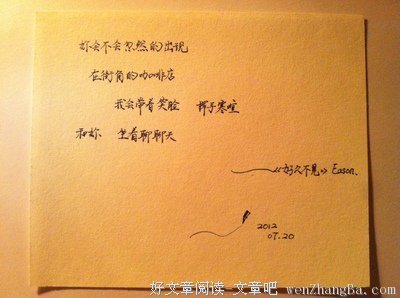 妳会不会忽然的出现
在街角的咖啡店
我会带着笑脸 挥手寒喧
和妳 坐着聊聊天
——《好久不见》 Eason.
2012
07.20
好文章阅读 文章吧 wenZhangBa.com